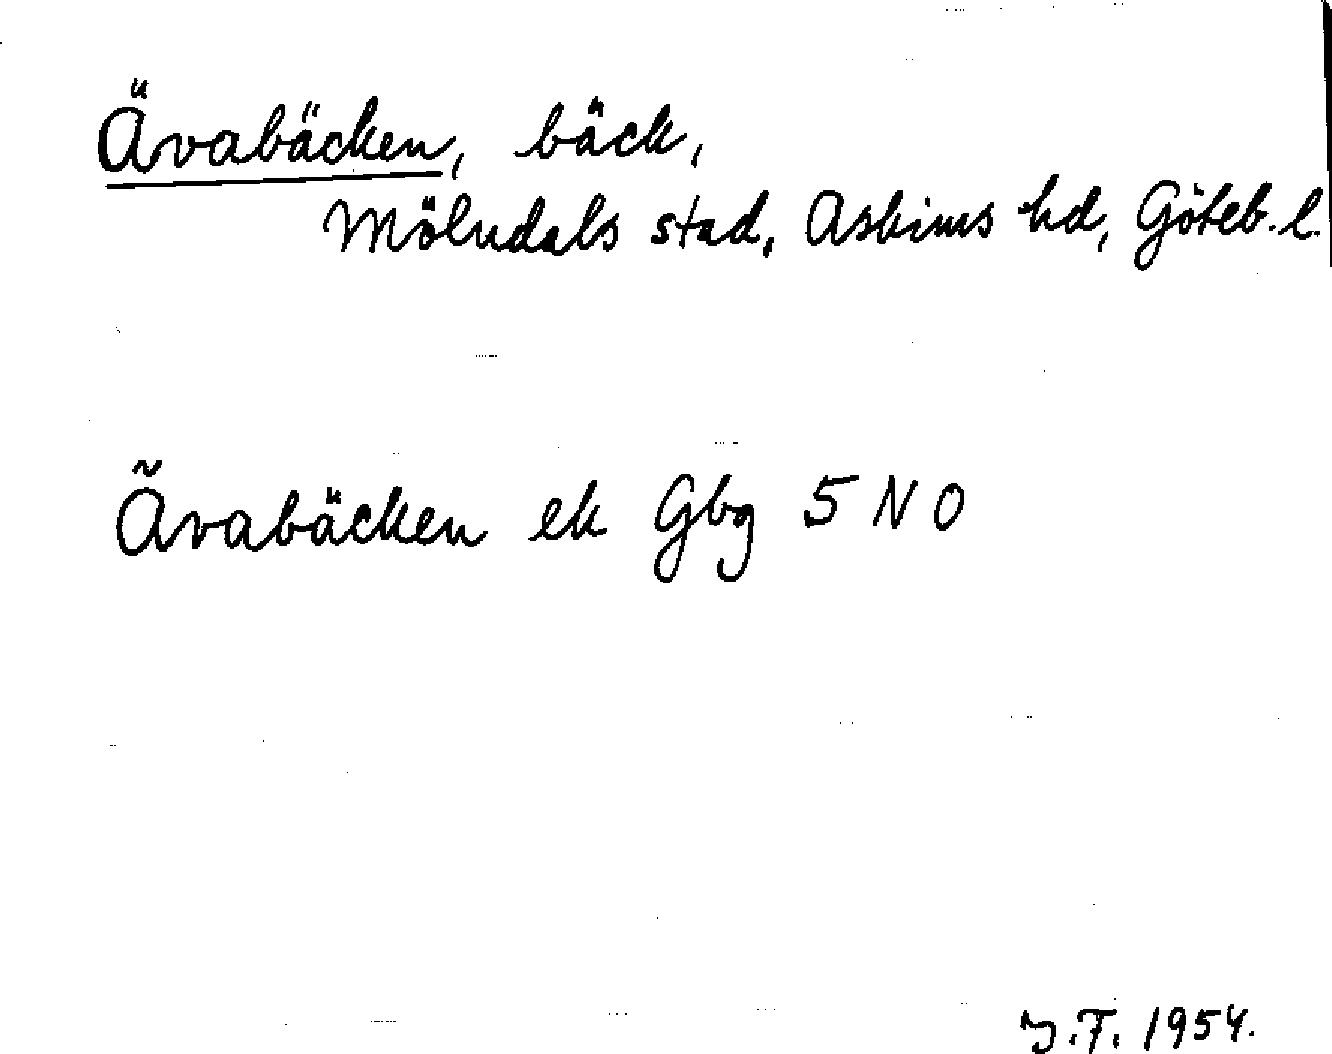 Ävabäcken, bäck,
Mölndals stad, Askims hd, Göteb. l.
Ävabäcken ek Gbg 5 NO
I.F. 1954.